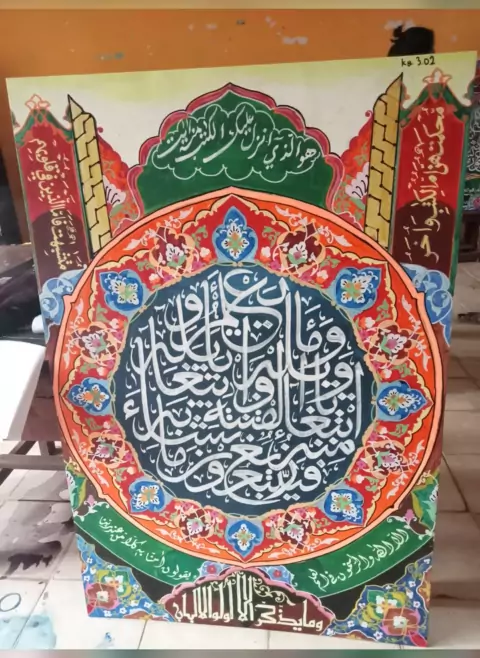 Ka 3.02
هو الذي انزل عليك الكتب منه ايت
محكمت هن ام الكتب واخر
متشبهت فاما الذين في قلوبهم
زيغ فيتبعون ما تشبه منه ابتغاء الفتنة وابتغاء تأويله وما يعلم تأويله
الا الله والرسخون في العلم
يقولون امنا به كل من عند ربنا
وما يذكر الا اولوا الالباب